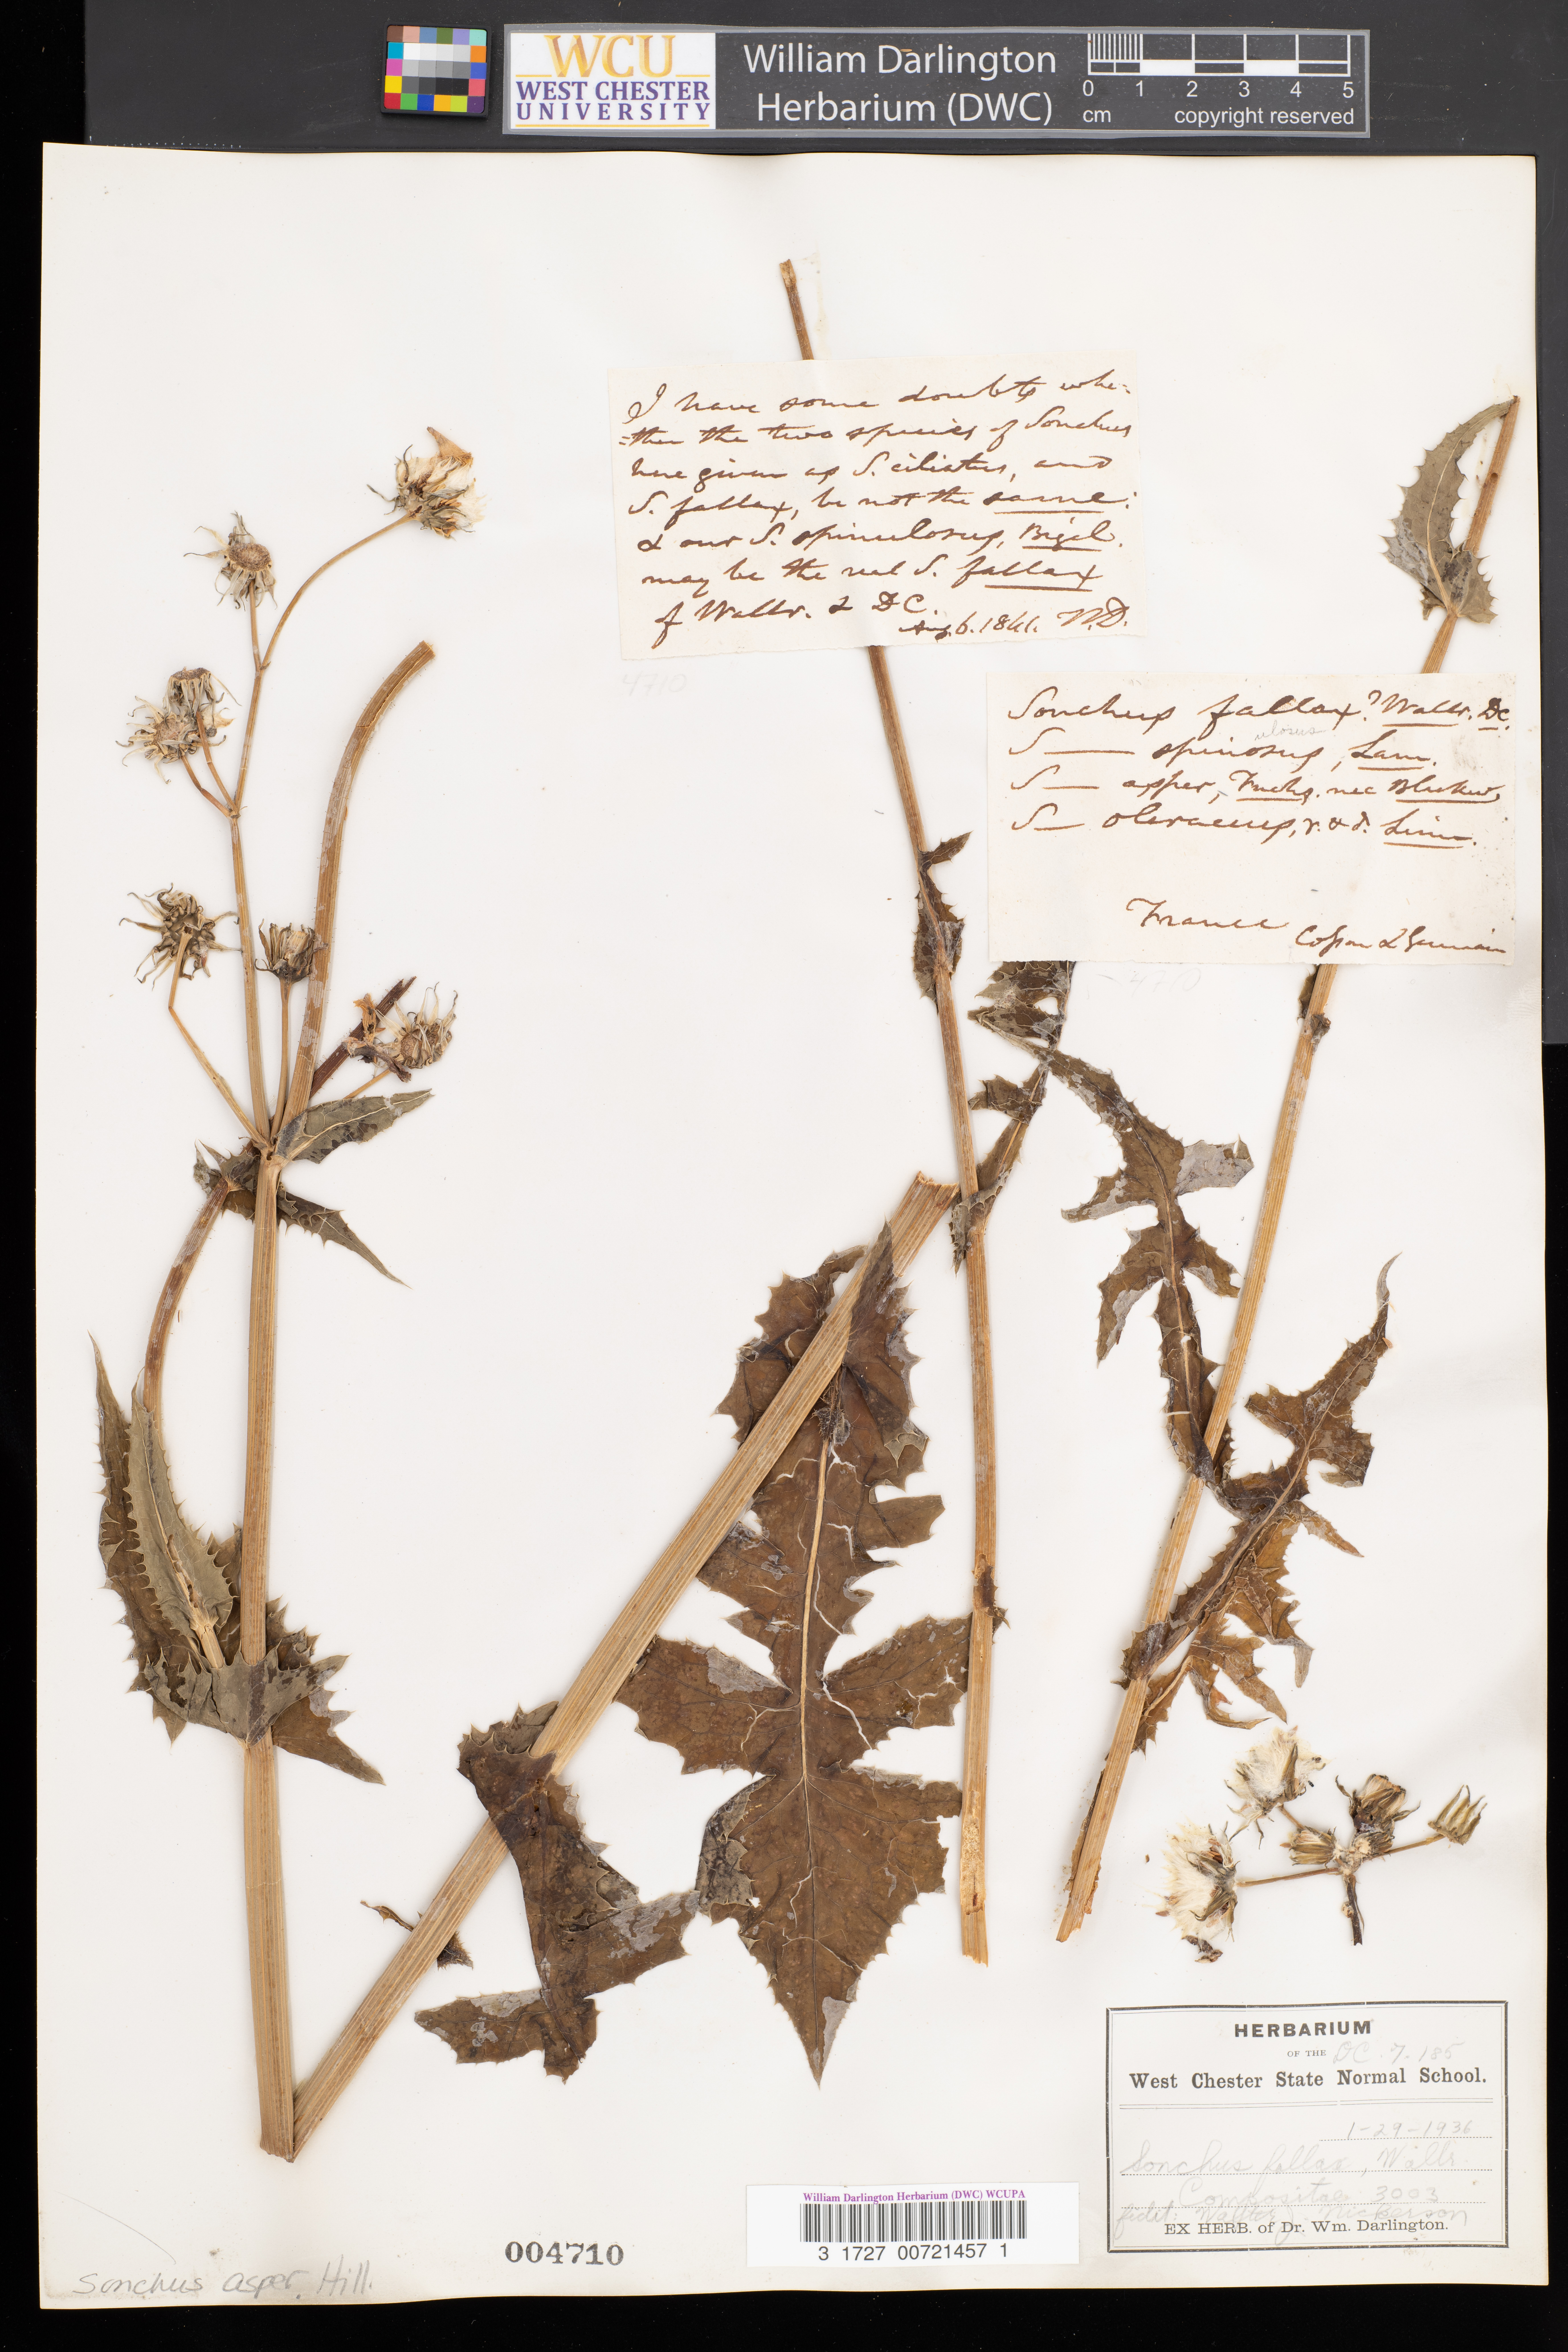 WCU
WEST CHESTER
UNIVERSITY
William Darlington
Herbarium (DWC)
0 1 2 3 4 5
cm copyright reserved
I have some doubts whe-
=ther the two species of Sonchus
here given as S. ciliatus, and
S. fallax, be not the same:
& our S. spinulosus, Bigel.
may be the real S. fallax
of Wallr. & DC.
Aug. 6. 1841. W.D.
4710
Sonchus fallax? Wallr. DC.
ulosus
S— spinosus, Lam.
S— asper, Fuchs. nec Blackw.
S— oleraceus, γ. & δ. Linn.
France Cosson & Germain
4710
HERBARIUM
OF THE DC. 7. 185
West Chester State Normal School.
1-29-1936
Sonchus fallax, Wallr.
Compositae 3003
fidit: Walter Nickerson
EX HERB. of Dr. Wm. Darlington.
William Darlington Herbarium (DWC) WCUPA
3 1727 00721457 1
004710
Sonchus asper Hill.